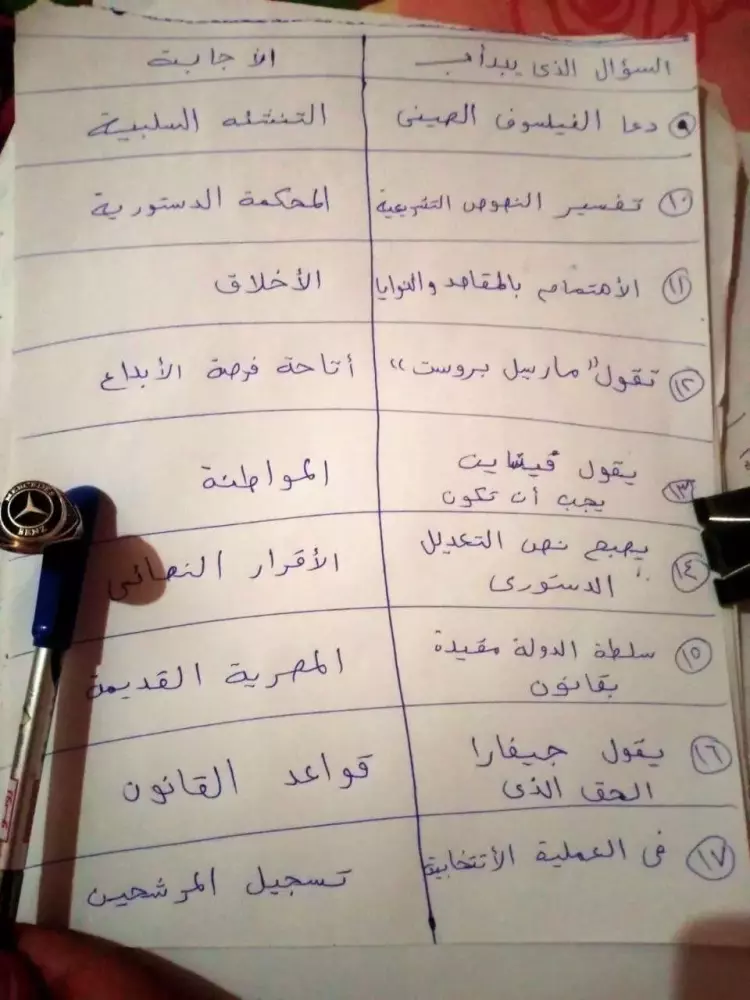 السؤال الذى يبدأ بـ الأجابة
٩ دعا الفيلسوف الصينى التنشئه السلبية
١٠ تفسير النصوص التشريعية المحكمة الدستورية
١١ الأهتمام بالمقاصد والنوايا الأخلاق
١٢ تقول "مارسيل بروست" أتاحة فرصة الأبداع
١٣ يقول فيشاين المواطنة
يجب أن تكون
١٤ يصبح نص التعديل الأقرار النهائى
الدستورى
١٥ سلطة الدولة مقيدة المصرية القديمة
بقانون
١٦ يقول جيفارا قواعد القانون
الحق الذى
١٧ فى العملية الأنتخابية تسجيل المرشحين
MERCEDES
BENZ